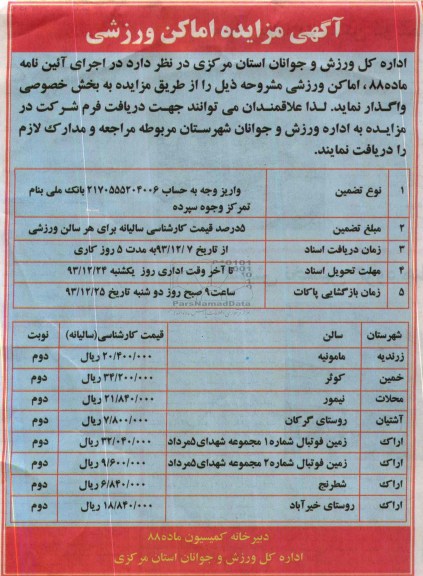 آگهی مزایده اماکن ورزشی
اداره کل ورزش و جوانان استان مرکزی در نظر دارد در اجرای آئین نامه
ماده۸۸، اماکن ورزشی مشروحه ذیل را از طریق مزایده به بخش خصوصی
واگذار نماید. لذا علاقمندان می توانند جهت دریافت فرم شرکت در
مزایده به اداره ورزش و جوانان شهرستان مربوطه مراجعه و مدارک لازم
را دریافت نمایند.
۱ نوع تضمین واریز وجه به حساب ۲۱۷۰۵۵۵۲۰۴۰۰۶ بانک ملی بنام
تمرکز وجوه سپرده
۲ مبلغ تضمین ۵درصد قیمت کارشناسی سالیانه برای هر سالن ورزشی
۳ زمان دریافت اسناد از تاریخ ۹۳/۱۲/۷به مدت ۵ روز کاری
۴ مهلت تحویل اسناد تا آخر وقت اداری روز یکشنبه ۹۳/۱۲/۲۴
۵ زمان بازگشایی پاکات ساعت۹ صبح روز دو شنبه تاریخ ۹۳/۱۲/۲۵
ParsNamadData
شهرستان سالن قیمت کارشناسی(سالیانه) نوبت
زرندیه مامونیه ۲۰/۴۰۰/۰۰۰ ریال دوم
خمین کوثر ۳۴/۲۰۰/۰۰۰ ریال دوم
محلات نیمور ۲۱/۸۴۰/۰۰۰ ریال دوم
آشتیان روستای گرکان ۷/۸۰۰/۰۰۰ ریال دوم
اراک زمین فوتبال شماره۱ مجموعه شهدای۵مرداد ۳۲/۰۴۰/۰۰۰ ریال دوم
اراک زمین فوتبال شماره۲ مجموعه شهدای۵مرداد ۹/۶۰۰/۰۰۰ ریال دوم
اراک شطرنج ۶/۸۴۰/۰۰۰ ریال دوم
اراک روستای خیرآباد ۱۸/۸۴۰/۰۰۰ ریال دوم
دبیرخانه کمیسیون ماده۸۸
اداره کل ورزش و جوانان استان مرکزی